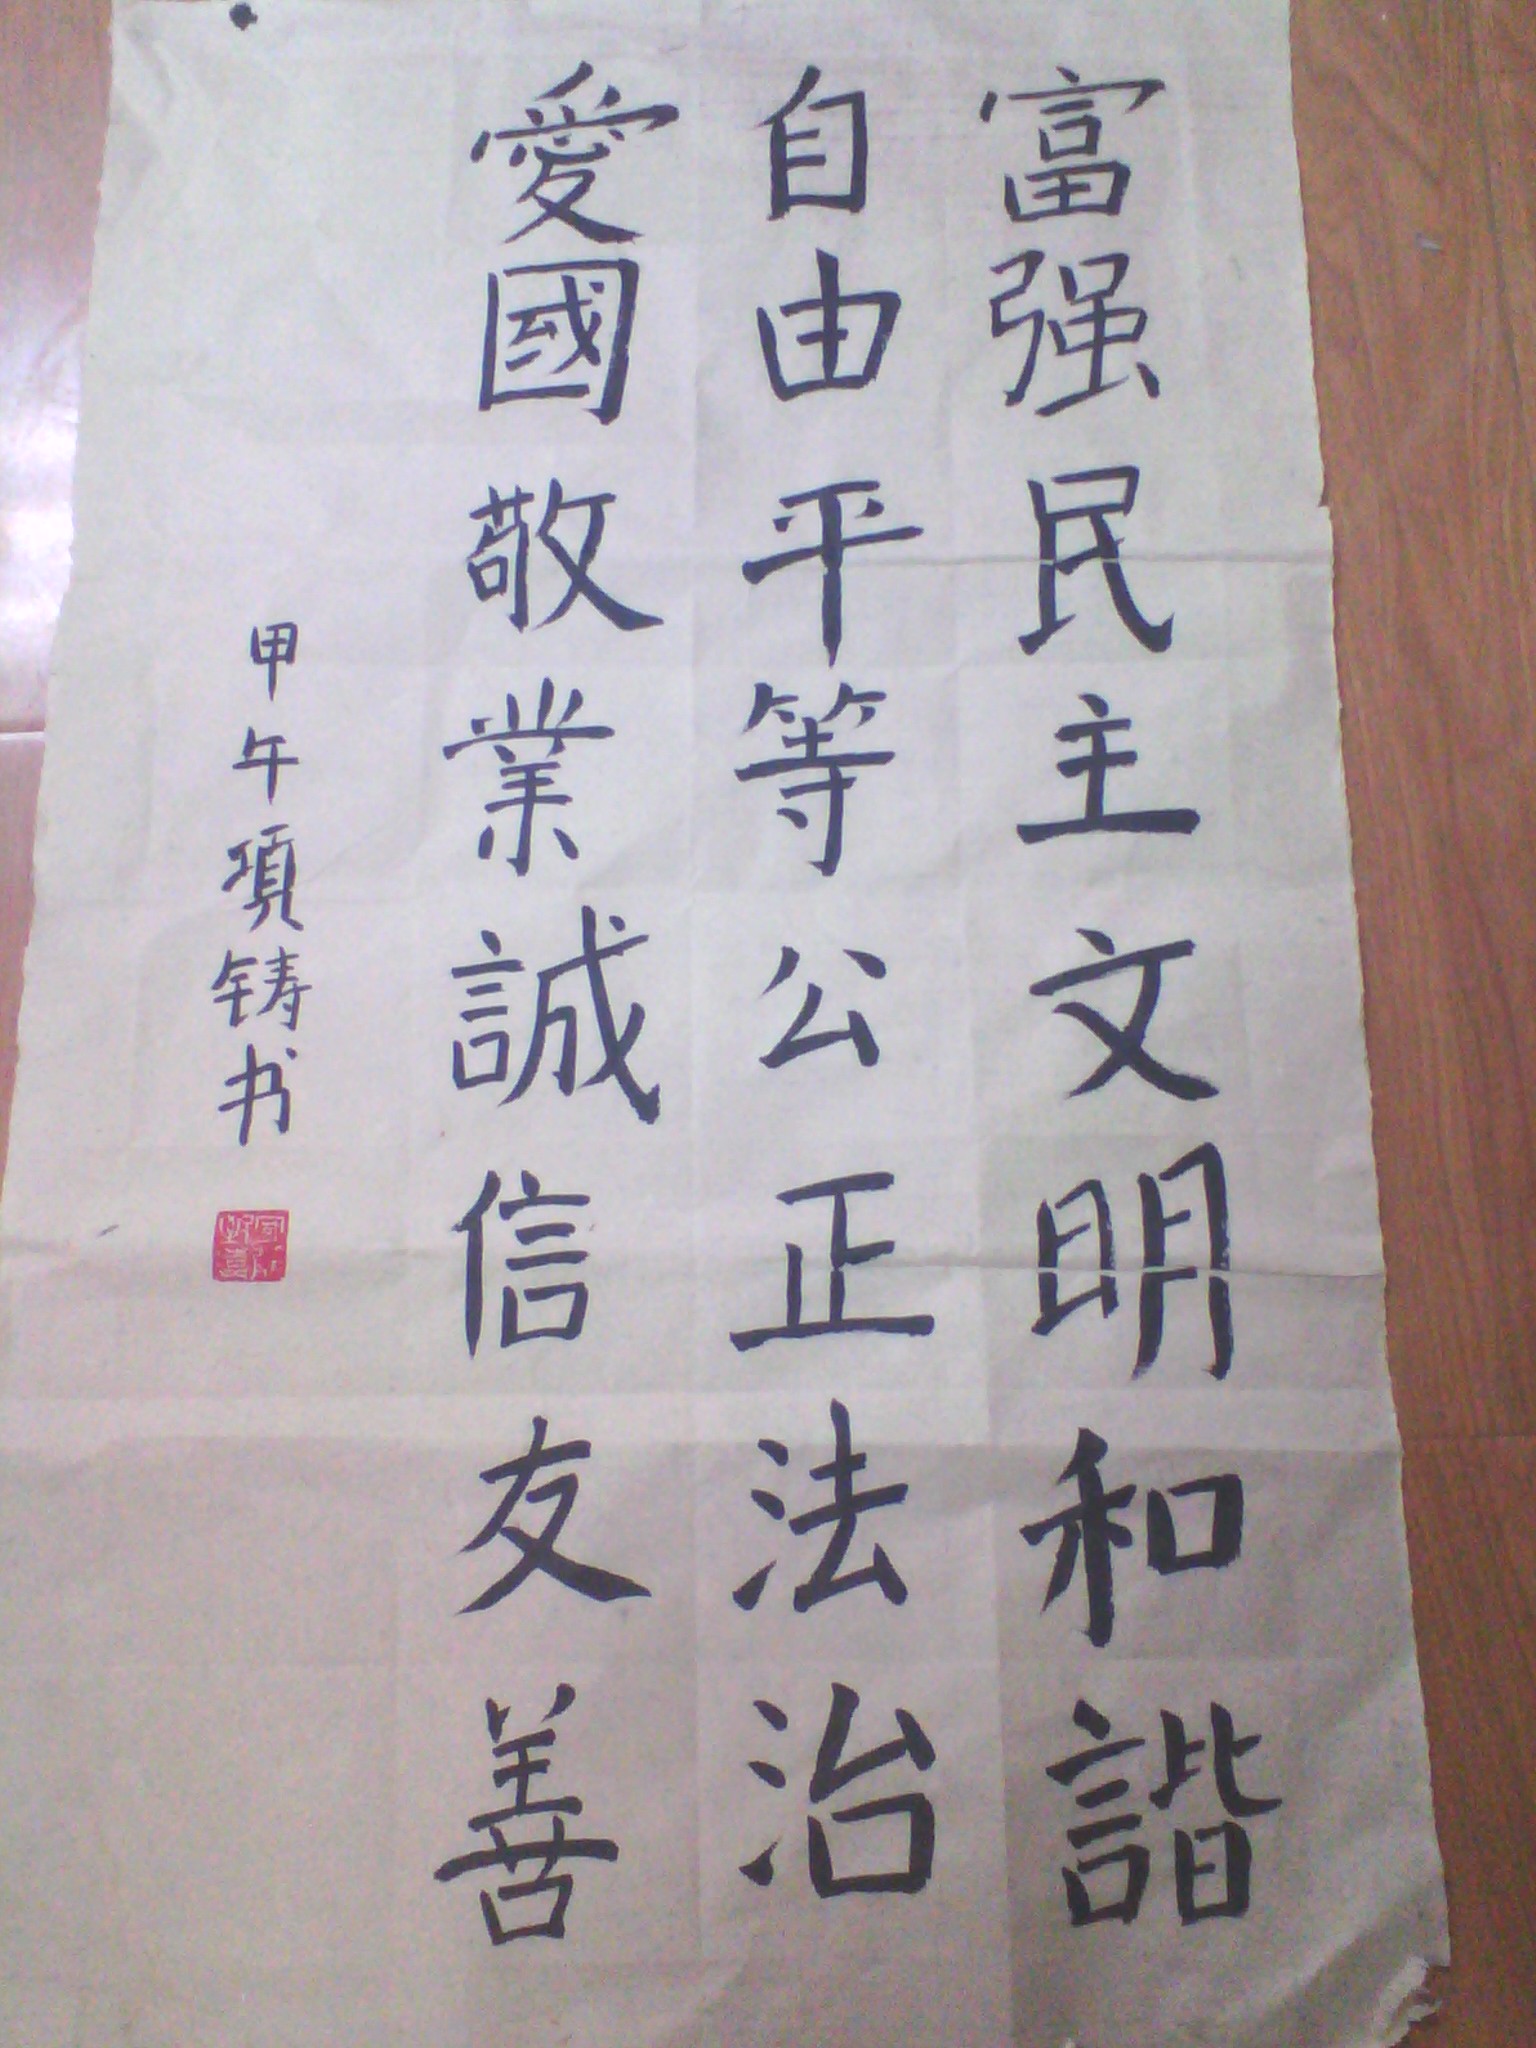 富强民主文明和諧
自由平等公正法治
愛國敬業誠信友善
甲午項铸书